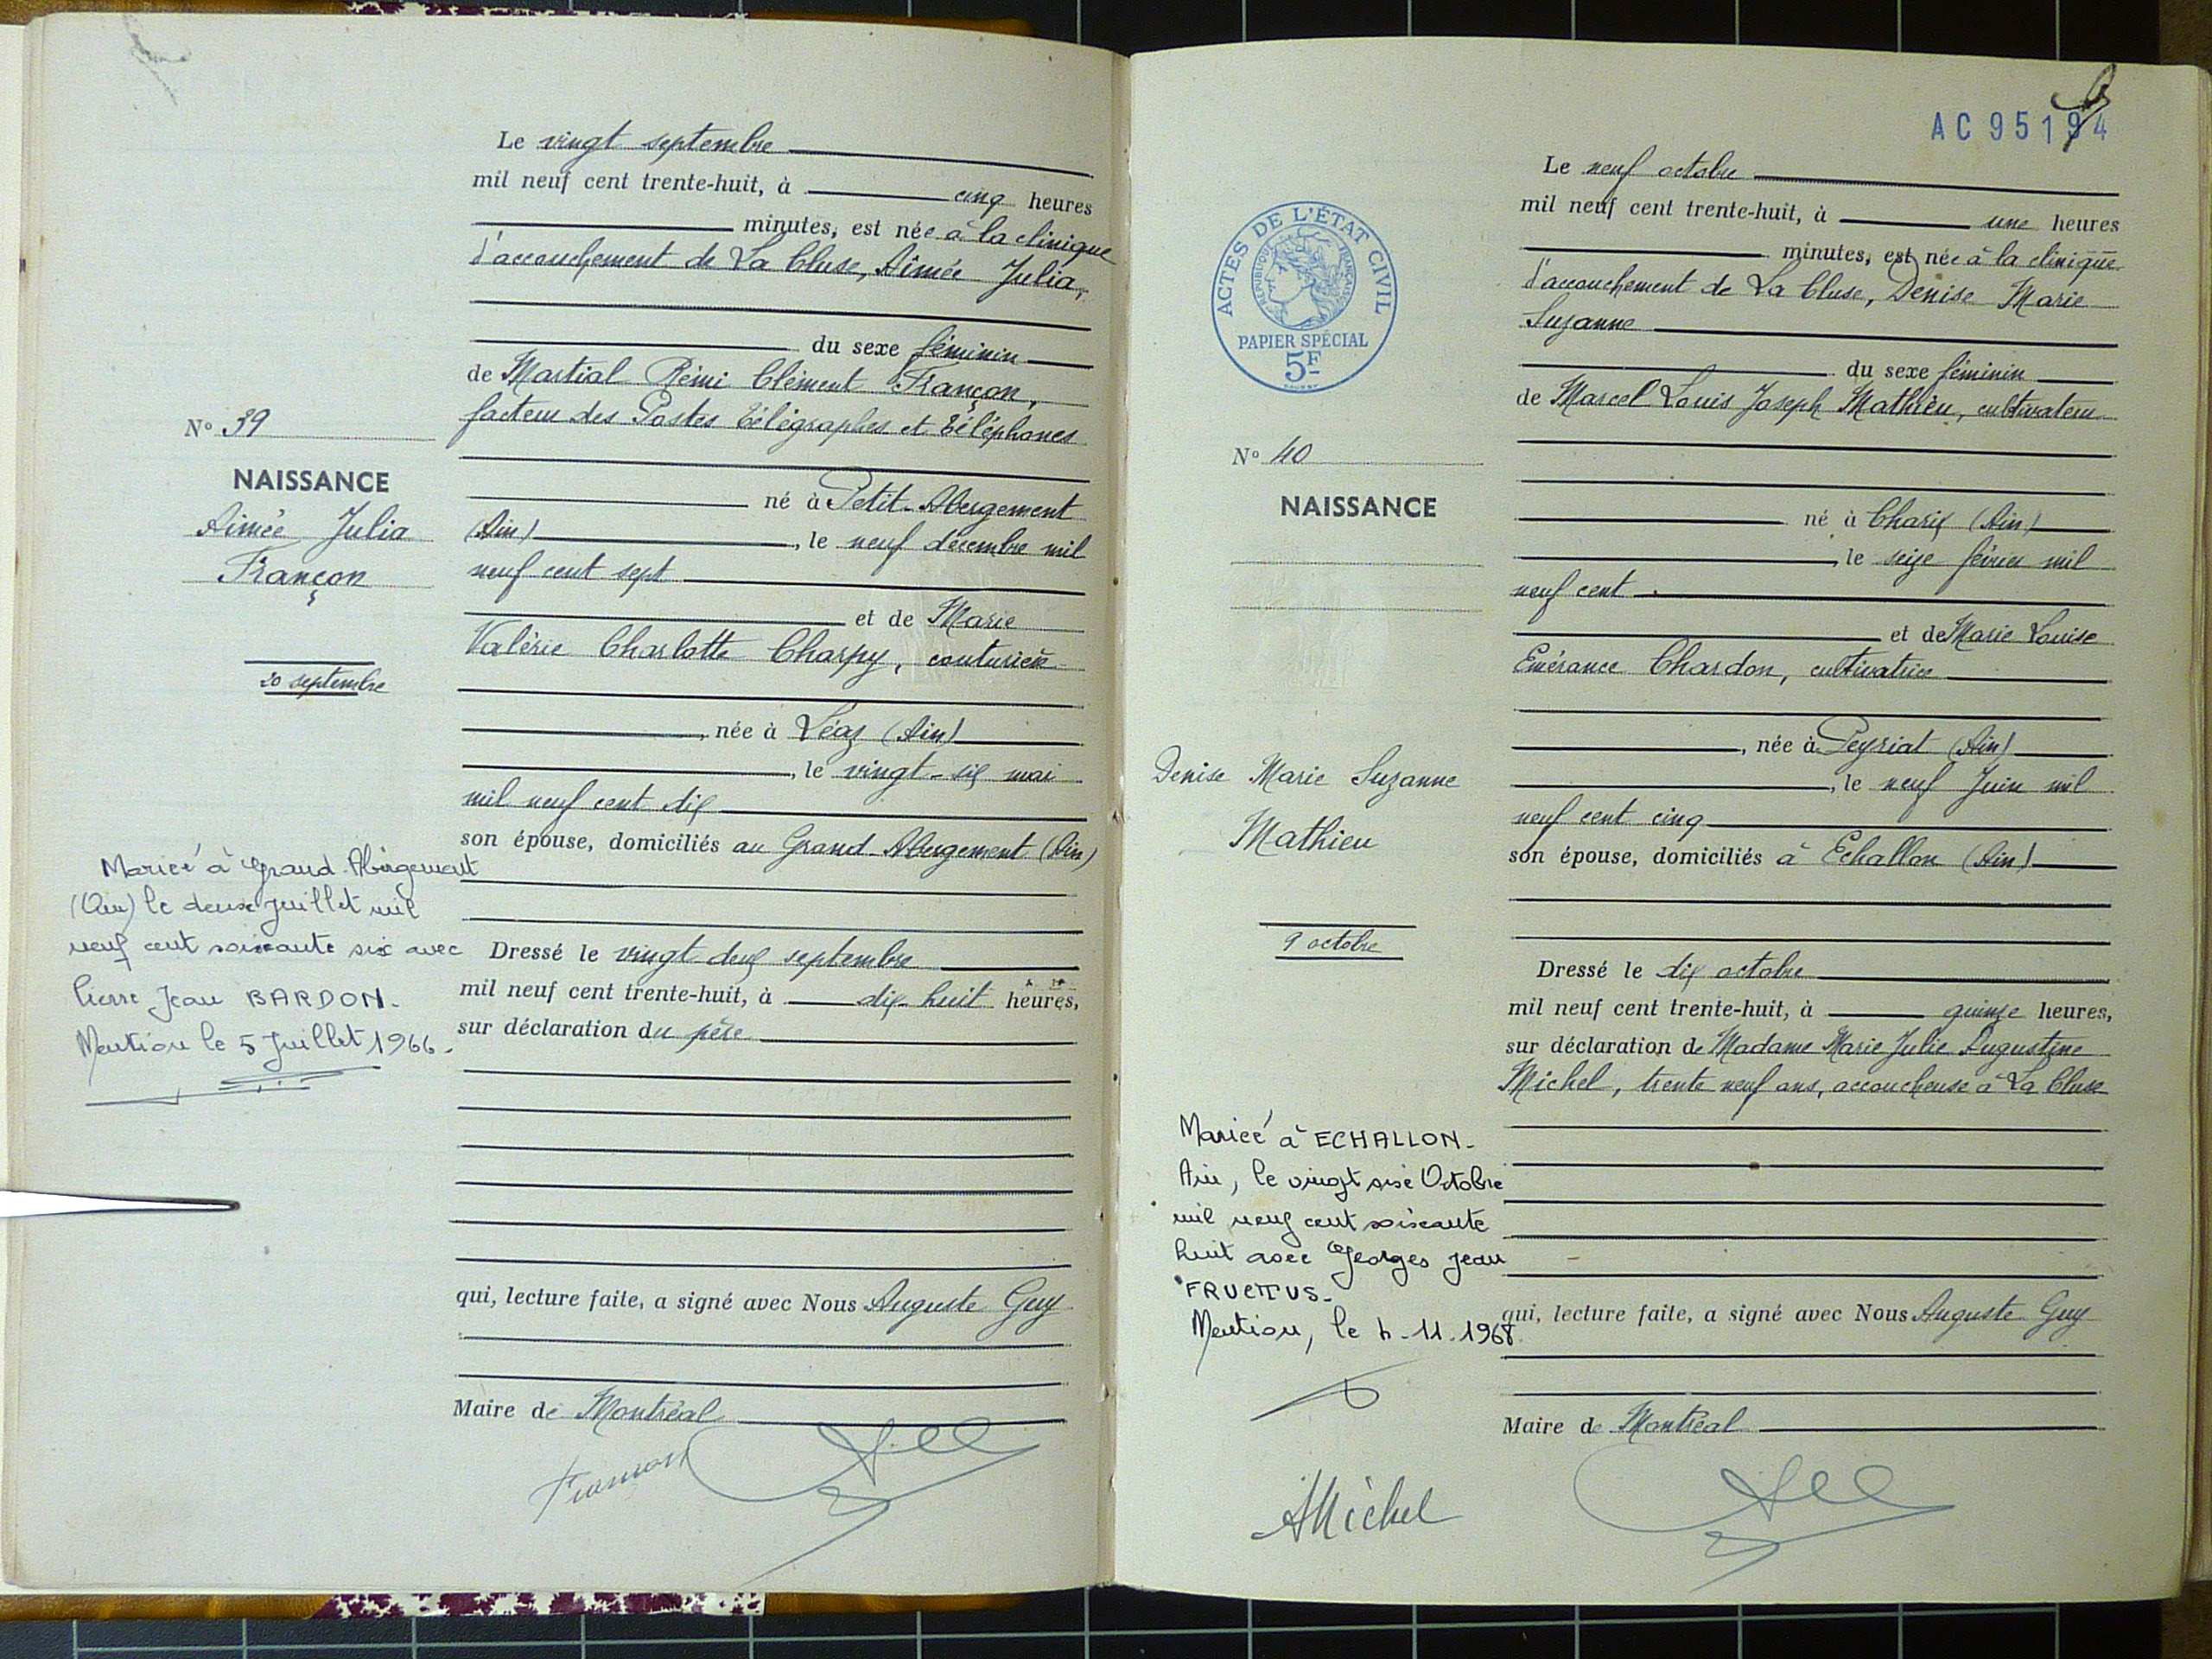 Le vingt septembre
mil neuf cent trente-huit, à cinq heures
minutes, est née à la clinique
d'accouchement de La Cluse, Aimée Julia,
du sexe féminin
de Martial Rémi Clément Françon,
facteur des Postes Télégraphes et Téléphones
né à Petit-Abergement
(Ain), le neuf décembre mil
neuf cent sept
et de Marie
Valérie Charlotte Charpy, couturière
, née à Léaz (Ain)
, le vingt-six mai
mil neuf cent dix
son épouse, domiciliés au Grand-Abergement (Ain)
Dressé le vingt deux septembre
mil neuf cent trente-huit, à dix-huit heures,
sur déclaration du père
qui, lecture faite, a signé avec Nous Auguste Guy
Maire de Montréal
Françon
N° 39
NAISSANCE
Aimée Julia
Françon
20 septembre
Mariée à Grand-Abergement
(Ain) le deux juillet mil
neuf cent soixante six avec
Pierre Jean BARDON.
Mention le 5 Juillet 1966.
AC 95194
ACTES DE L'ÉTAT CIVIL
RÉPUBLIQUE FRANÇAISE
PAPIER SPÉCIAL
5F
Le neuf octobre
mil neuf cent trente-huit, à une heures
minutes, est née à la clinique
d'accouchement de La Cluse, Denise Marie
Suzanne
du sexe féminin
de Marcel Louis Joseph Mathieu, cultivateur
né à Charix (Ain)
, le seize février mil
neuf cent
et de Marie Louise
Emérance Chardon, cultivatrice
, née à Peyriat (Ain)
, le neuf Juin mil
neuf cent cinq
son épouse, domiciliés à Echallon (Ain)
Dressé le dix octobre
mil neuf cent trente-huit, à quinze heures,
sur déclaration de Madame Marie Julie Augustine
Michel, trente neuf ans, accoucheuse à La Cluse
qui, lecture faite, a signé avec Nous Auguste Guy
Maire de Montréal
N° 40
NAISSANCE
Denise Marie Suzanne
Mathieu
9 octobre
Mariée à ECHALLON-
Ain, le vingt six Octobre
mil neuf cent soixante
huit avec Georges Jean
FRUCTUS-
Mention, le 4-11-1968.
AMichel